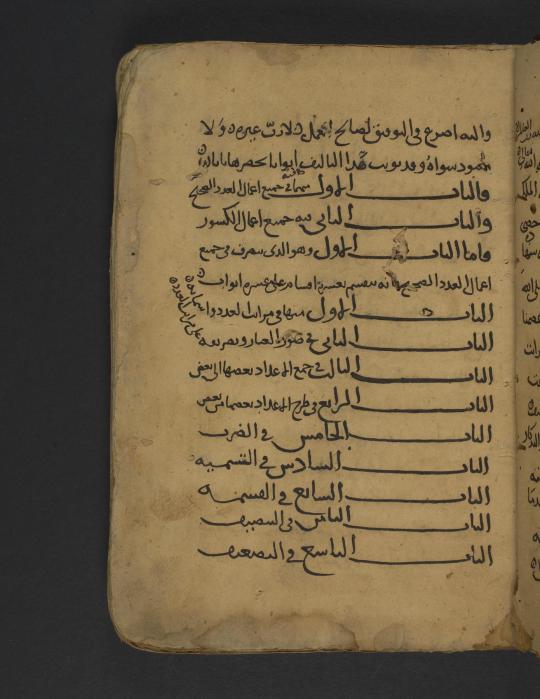 والله اضرع في التوفيق لصالح العمل لا رب غيره ولا
معبود سواه وقد بوبت هذا التاليف ابوابا يحصرها بابان
فالباب الاول في جميع اعمال العدد الصحيح
والباب الثاني فيه جميع اعمال الكسور
فاما الباب الاول وهو الذي يتصرف في جميع
اعمال العدد الصحيح فانه ينقسم بعشرة اقسام على عشرة ابواب
الباب الاول منها في مراتب العدد واسمائه
على مراتب العدد
الباب الثاني في صور الغبار وتصريفه
الباب الثالث في جمع الاعداد بعضها الى بعض
الباب الرابع في طرح الاعداد بعضها من بعض
الباب الخامس في الضرب
الباب السادس في التسمية
الباب السابع في القسمة
الباب الثامن في التنصيف
الباب التاسع في التضعيف